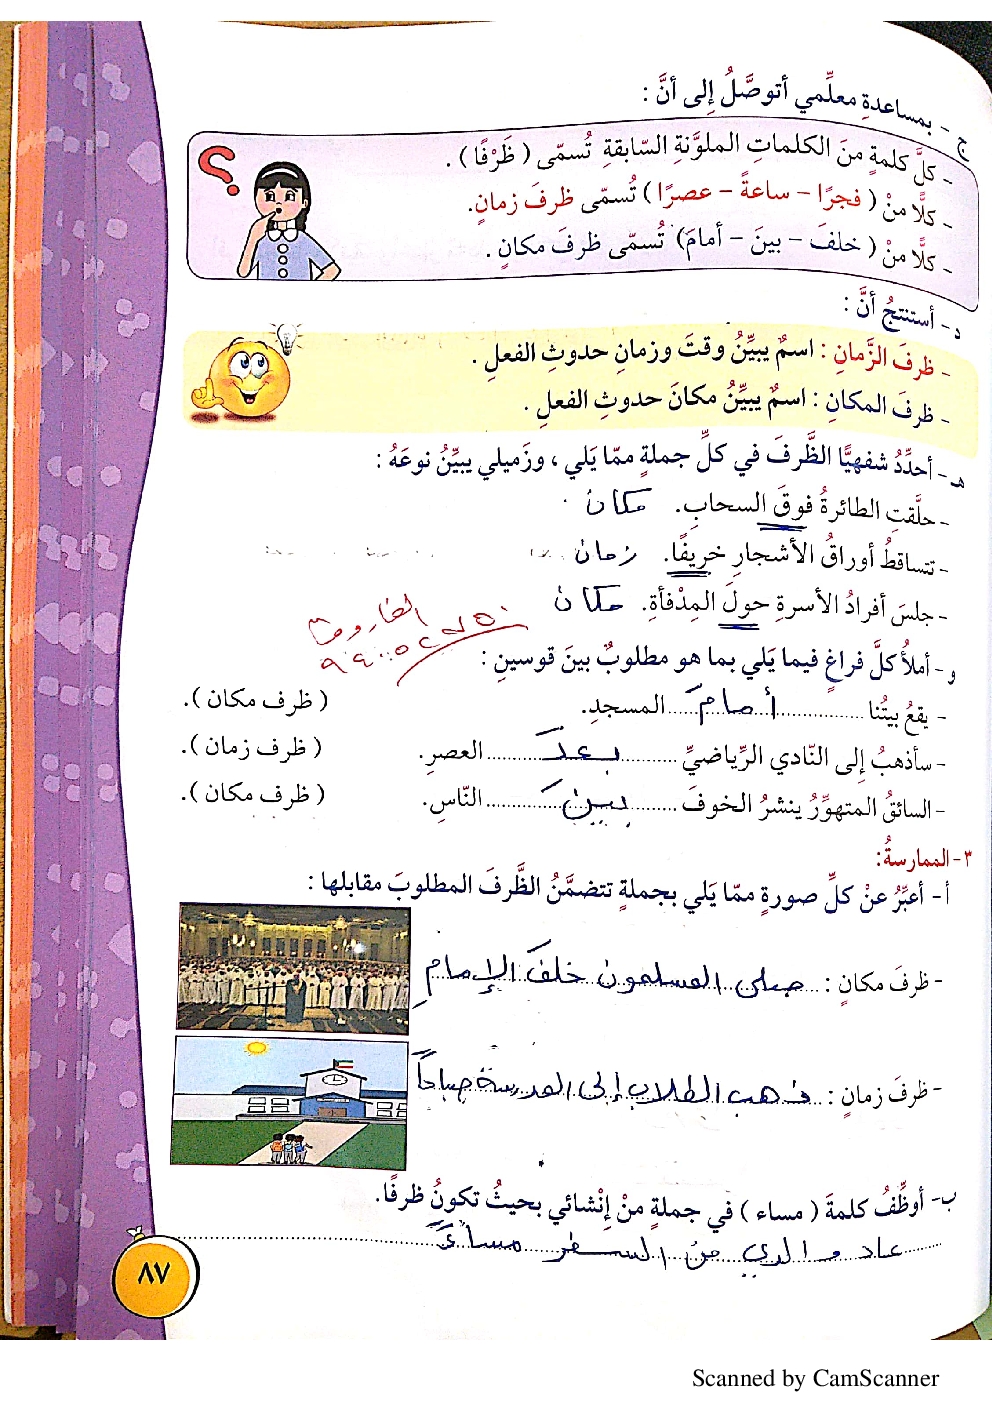 ج - بمساعدةِ معلِّمي أتوصَّلُ إلى أنَّ :
- كلَّ كلمةٍ منَ الكلماتِ الملوَّنةِ السّابقةِ تُسمّى ( ظَرْفًا ) .
- كلًّا منْ ( فجرًا - ساعةً - عصرًا ) تُسمّى ظرفَ زمانٍ.
- كلًّا منْ ( خلفَ - بينَ - أمامَ) تُسمّى ظرفَ مكانٍ .
د- أستنتجُ أنَّ :
- ظرفَ الزَّمانِ : اسمٌ يبيِّنُ وقتَ وزمانِ حدوثِ الفعلِ .
- ظرفَ المكانِ : اسمٌ يبيِّنُ مكانَ حدوثِ الفعلِ .
هـ- أحدِّدُ شفهيًّا الظَّرفَ في كلِّ جملةٍ ممّا يَلي ، وزَميلي يبيِّنُ نوعَهُ :
- حلَّقتِ الطائرةُ فوقَ السحابِ. مكان
- تتساقطُ أوراقُ الأشجارِ خريفًا. زمان
- جلسَ أفرادُ الأسرةِ حولَ المِدْفأةِ. مكان
الفاروق
و- أملأُ كلَّ فراغٍ فيما يَلي بما هو مطلوبٌ بينَ قوسينِ :
- يقعُ بيتُنا أمامَ المسجدِ. ( ظرف مكان ).
- سأذهبُ إلى النّادي الرِّياضيِّ بعدَ العصرِ. ( ظرف زمان ).
- السائقُ المتهوِّرُ ينشرُ الخوفَ بينَ النّاسِ. ( ظرف مكان ).
٣- الممارسةُ:
أ- أعبِّرُ عنْ كلِّ صورةٍ ممّا يَلي بجملةٍ تتضمَّنُ الظَّرفَ المطلوبَ مقابلها :
- ظرفَ مكانٍ : صلى المسلمون خلفَ الإمامِ
- ظرفَ زمانٍ : ذهب الطلاب إلى المدرسة صباحاً
ب- أوظِّفُ كلمةَ ( مساء ) في جملةٍ منْ إنْشائي بحيثُ تكونُ ظرفًا.
عاد والدي من السفر مساءً
٨٧
Scanned by CamScanner